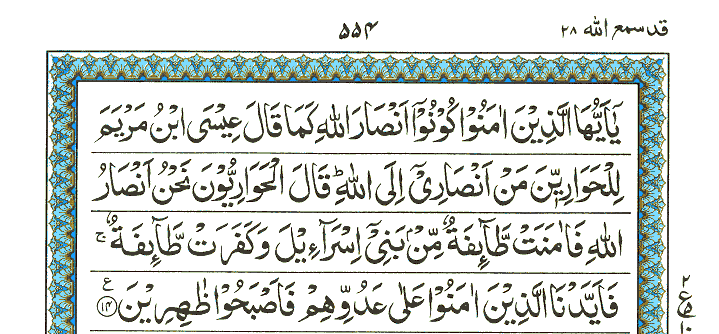 قد سمع الله ۲۸
۵۵۴
يٰۤاَيُّهَا الَّذِيْنَ اٰمَنُوْا كُوْنُوْۤا اَنْصَارَ اللهِ كَمَا قَالَ عِيْسَى ابْنُ مَرْيَمَ
لِلْحَوَارِيّٖنَ مَنْ اَنْصَارِيْۤ اِلَى اللهِ ؕ قَالَ الْحَوَارِيُّوْنَ نَحْنُ اَنْصَارُ
اللهِ فَاٰمَنَتْ طَّآئِفَةٌ مِّنْۢ بَنِيْۤ اِسْرَآءِيْلَ وَكَفَرَتْ طَّآئِفَةٌ ۚ
فَاَيَّدْنَا الَّذِيْنَ اٰمَنُوْا عَلٰى عَدُوِّهِمْ فَاَصْبَحُوْا ظٰهِرِيْنَ ﴿۱۴﴾ ع
۲
ع